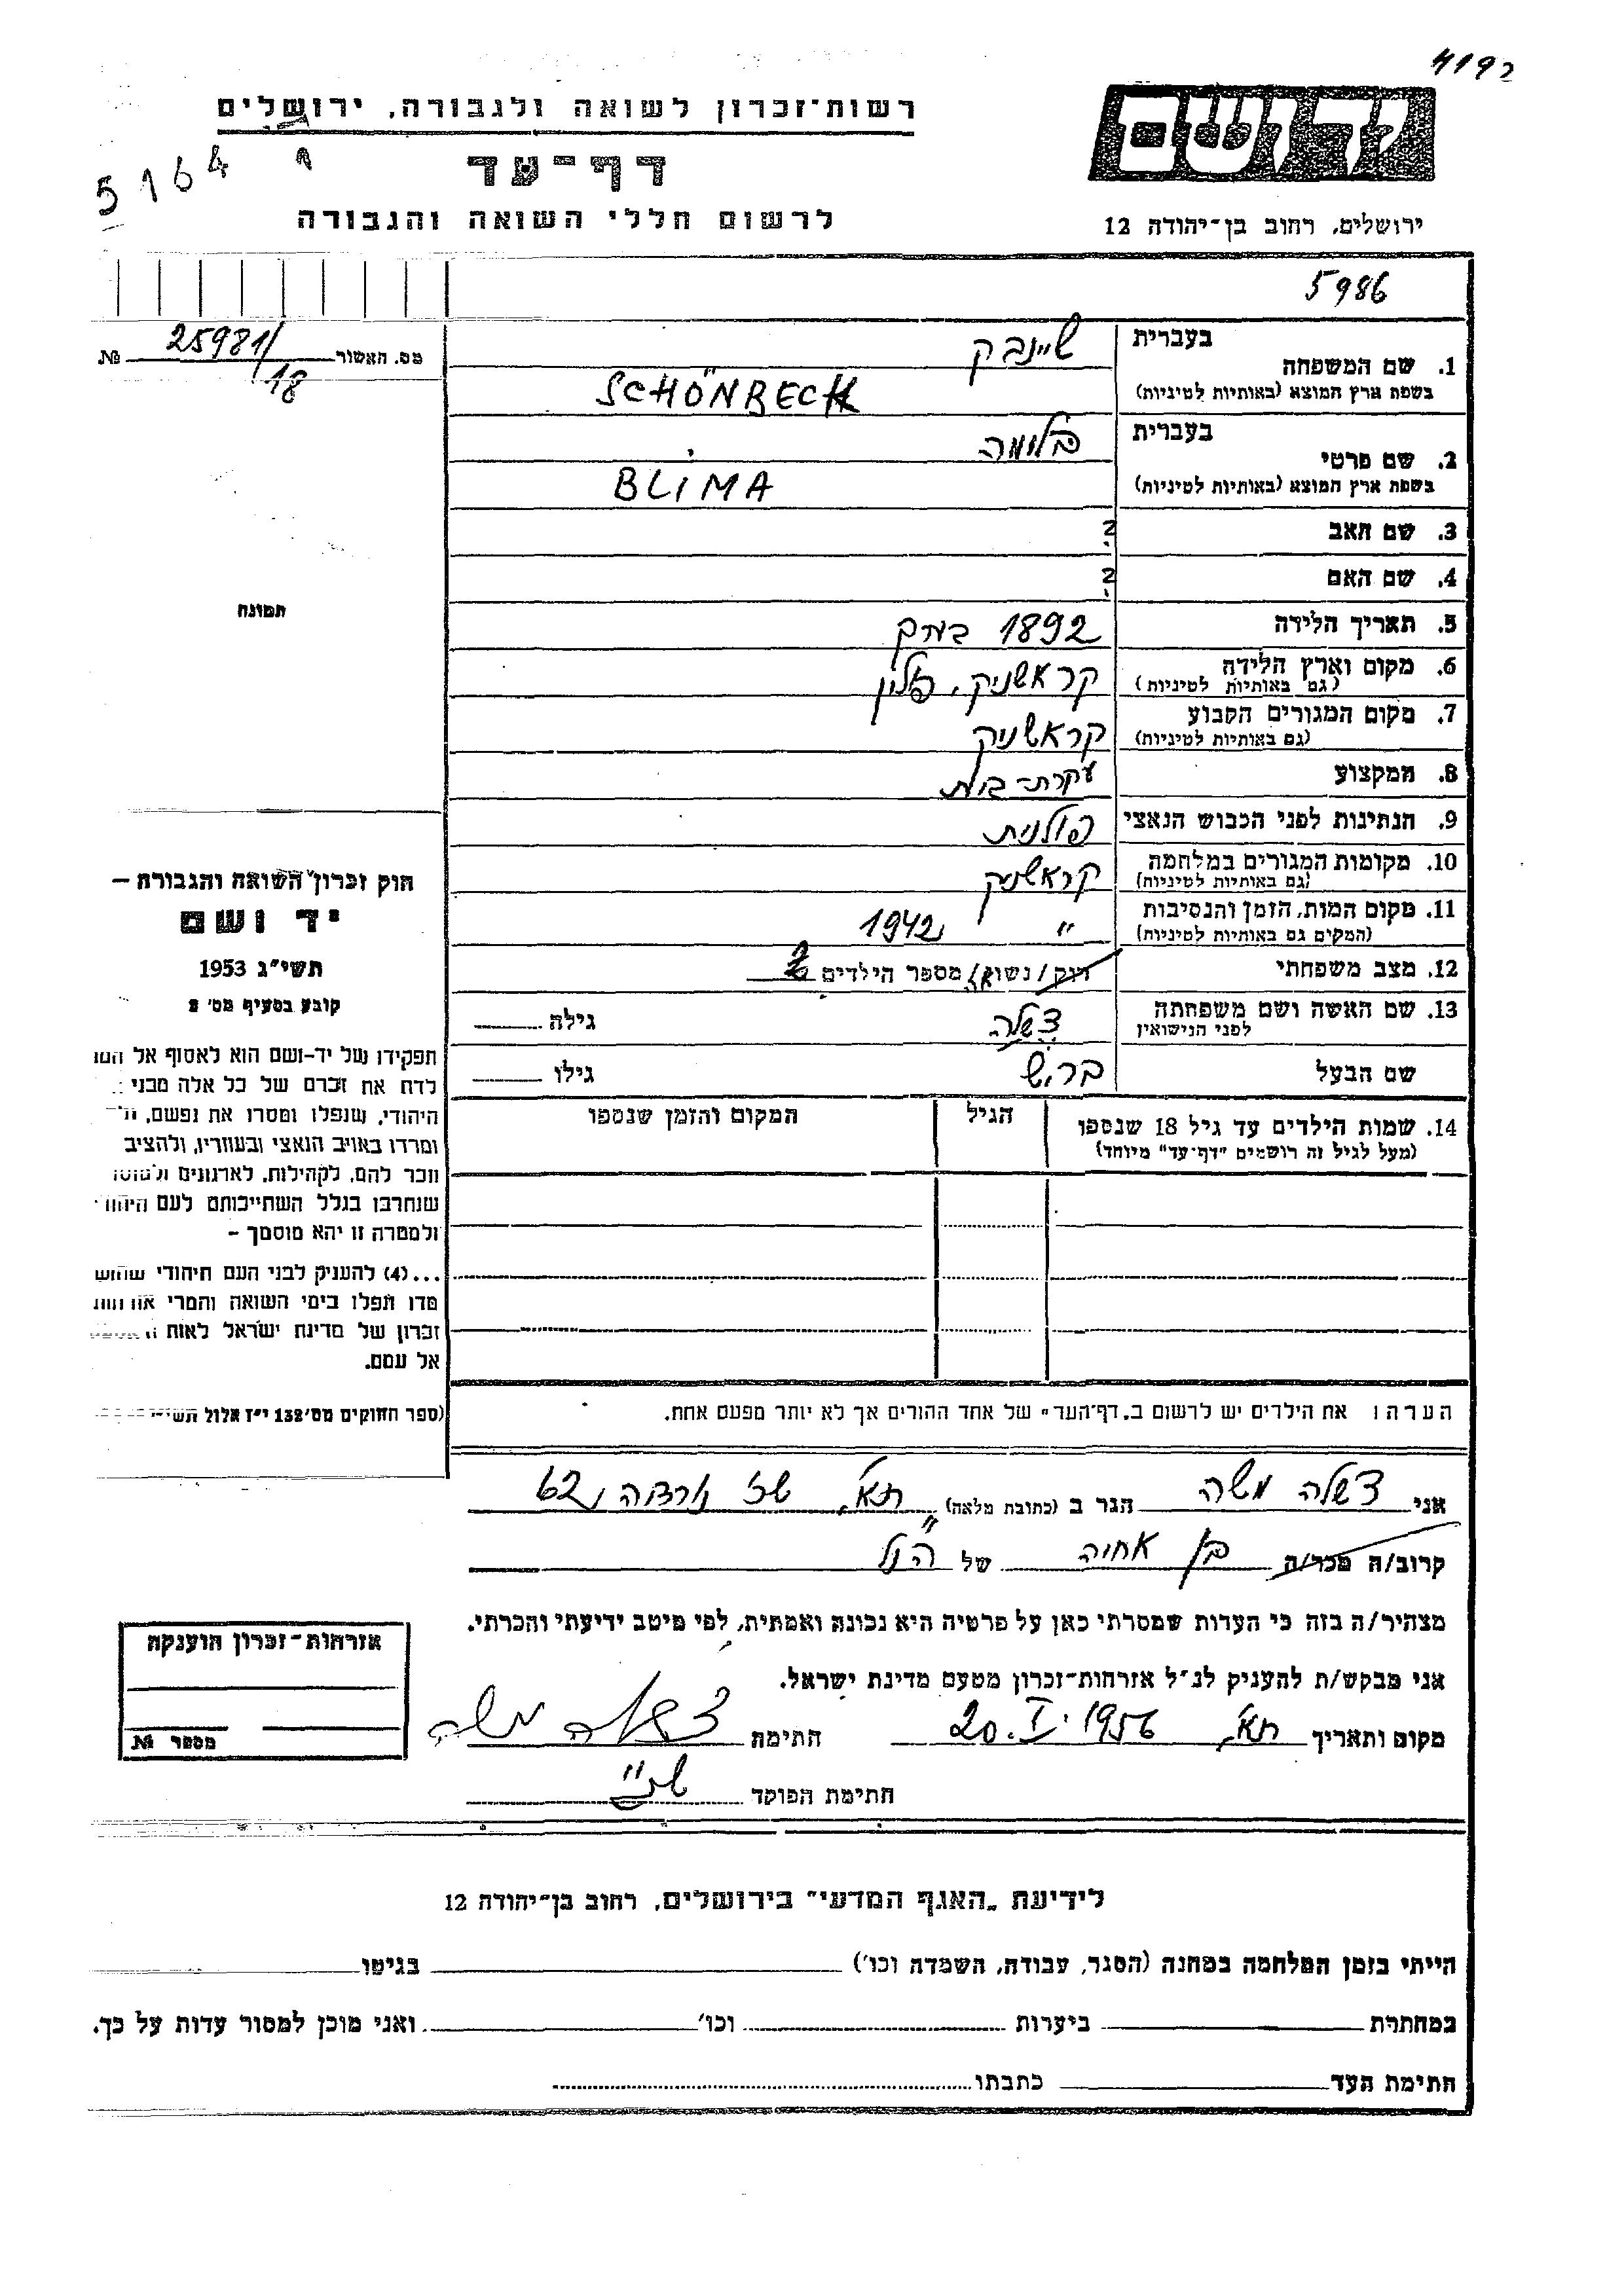 4192
רשות־זכרון לשואה ולגבורה, ירושלים
יד ושם
5164
דף־עד
לרשום חללי השואה והגבורה
ירושלים, רחוב בן־יהודה 12
5986
מס. האשור 25981/18 №
בעברית שיינבק
1. שם המשפחה
בשפת ארץ המוצא (באותיות לטיניות) SCHÖNBECK
בעברית בלומה
2. שם פרטי
בשפת ארץ המוצא (באותיות לטיניות) BLIMA
3. שם האב ?
4. שם האם ?
תמונה
5. תאריך הלידה 1892 בערך
6. מקום וארץ הלידה קראשניק, פולין
(גם באותיות לטיניות)
7. מקום המגורים הקבוע קראשניק
(גם באותיות לטיניות)
8. המקצוע עקרת-בית
9. הנתינות לפני הכבוש הנאצי פולנית
10. מקומות המגורים במלחמה קראשניק
(גם באותיות לטיניות)
11. מקום המות, הזמן והנסיבות " 1942
(המקום גם באותיות לטיניות)
12. מצב משפחתי רוק/נשואה/ מספר הילדים
13. שם האשה ושם משפחתה לפני הנישואין גילה
שם הבעל בריש גילו
14. שמות הילדים עד גיל 18 שנספו הגיל המקום והזמן שנספו
(מעל לגיל זה רושמים "דף־עד" מיוחד)
חוק זכרון השואה והגבורה –
יד ושם
תשי"ג 1953
קובע בסעיף מס' 2
תפקידו של יד-ושם הוא לאסוף אל
לדת את זכרם של כל אלה מבני
היהודי, שנפלו ומסרו את נפשם,
ומרדו באויב הנאצי ובעוזריו, ולהציב
זכר להם, לקהילות, לארגונים
שנחרבו בגלל השתייכותם לעם
ולמטרה זו יהא מוסמך –
...(4) להעניק לבני העם היהודי
מדו ונפלו בימי השואה והמרי
זכרון של מדינת ישראל לאות
אל עמם.
(ספר החוקים מס' 132 י"ז אלול
הערה: את הילדים יש לרשום ב„דף־העד" של אחד ההורים אך לא יותר מפעם אחת.
אני משה הגר ב (כתובת מלאה) ת"א, 62
קרוב/ה מכר/ה בן אחיה של הנ"ל
מצהיר/ה בזה כי העדות שמסרתי כאן על פרטיה היא נכונה ואמתית, לפי מיטב ידיעתי והכרתי.
אני מבקש/ת להעניק לנ"ל אזרחות־זכרון מטעם מדינת ישראל.
מקום ותאריך ת"א, 20.I.1956 חתימת משה
חתימת הפוקד
אזרחות־זכרון הוענקה
מספר №
לידיעת „האגף המדעי" בירושלים, רחוב בן־יהודה 12
הייתי בזמן המלחמה במחנה (הסגר, עבודה, השמדה וכו') בגיטו
במחתרת ביערות וכו' ואני מוכן למסור עדות על כך.
חתימת העד כתבתו